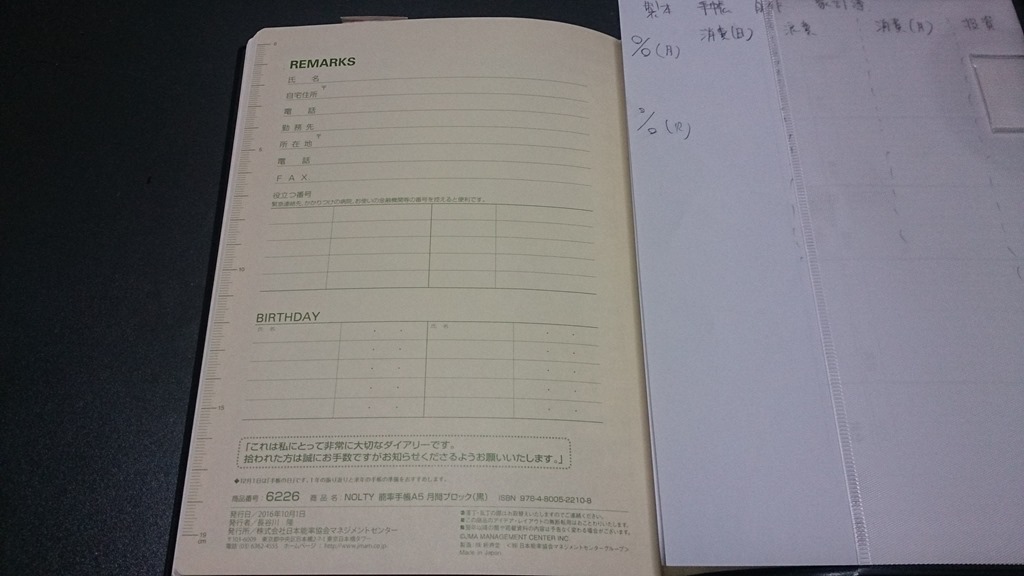 REMARKS
氏 名
自宅住所 〒
電 話
勤 務 先
所 在 地 〒
電 話
F A X
役立つ番号
緊急連絡先、かかりつけの病院、お使いの金融機関等の番号を控えると便利です。
BIRTHDAY
氏 名 氏 名
「これは私にとって非常に大切なダイアリーです。
拾われた方は誠にお手数ですがお知らせくださるようお願いいたします。」
商品番号: 6226 商 品 名: NOLTY 能率手帳A5 月間ブロック(黒) ISBN 978-4-8005-2210-8
発行日/2016年10月1日
発行者/長谷川 隆
発行所/株式会社日本能率協会マネジメントセンター
ホームページ/http://www.jmam.co.jp
©JMA MANAGEMENT CENTER INC.
Made in Japan.
5
10
15
18
cm
手帳
消費(日) 浪費 消費(月) 投資
%(月)
%(火)